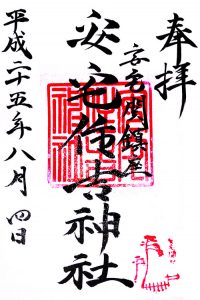 奉拝
安宅関鎮座
安宅住吉神社
平成二十五年八月四日